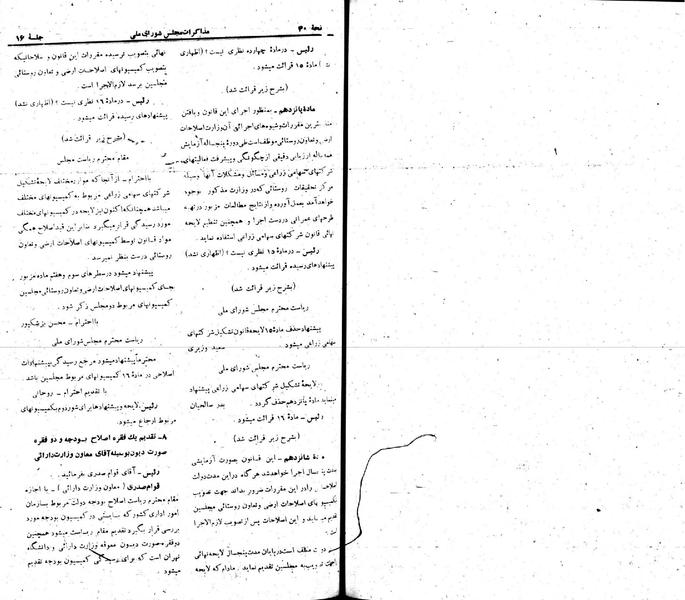 صفحهٔ ۳۰
مذاکرات مجلس شورای ملی
جلسهٔ ۱۶
رئیس ـ در مادهٔ چهارده نظری نیست؟ (اظهاری
نشد) مادهٔ ۱۵ قرائت میشود.
(بشرح زیر قرائت شد)
مادهٔ پانزدهم ـ بمنظور اجرای این قانون و یافتن
مقررات و شیوه‌های اجرائی آن وزارت اصلاحات
ارضی و تعاون روستائی موظف است طی دورهٔ پنجساله آزمایش
همه ساله ارزیابی دقیقی از چگونگی و پیشرفت فعالیتهای
شرکتهای سهامی زراعی و مسائل و مشکلات آنها بوسیله
مرکز تحقیقات روستائی که در وزارت مذکور بوجود
خواهد آمد بعمل آورده و از نتایج مطالعات مزبور در تهیه
طرحهای عمرانی در دست اجرا و همچنین تنظیم لایحه
نهائی قانون شرکتهای سهامی زراعی استفاده نماید.
رئیس ـ در مادهٔ ۱۵ نظری نیست؟ (اظهاری نشد)
پیشنهادهای رسیده قرائت میشود.
(بشرح زیر قرائت شد)
ریاست محترم مجلس شورای ملی
پیشنهاد حذف مادهٔ ۱۵ لایحه قانون تشکیل شرکتهای
سهامی زراعی میشود. سعید وزیری
ریاست محترم مجلس شورای ملی
لایحهٔ تشکیل شرکتهای سهامی زراعی پیشنهاد
مینماید مادهٔ پانزدهم حذف گردد. بدر صالحیان
رئیس ـ مادهٔ ۱۶ قرائت میشود.
(بشرح زیر قرائت شد)
مادهٔ شانزدهم ـ این قانون بصورت آزمایشی
مدت پنجسال اجرا خواهد شد هرگاه در این مدت دولت
اصلاحاتی را در این مقررات ضرور بداند جهت تصویب
بکمیسیونهای اصلاحات ارضی و تعاون روستائی مجلسین
تقدیم مینماید و این اصلاحات پس از تصویب لازم‌الاجرا
است.
دولت مکلف است در پایان مدت پنجسال لایحه نهائی
را جهت تصویب به مجلسین تقدیم نماید. مادام که لایحه
نهائی بتصویب نرسیده مقررات این قانون و اصلاحاتیکه
بتصویب کمیسیونهای اصلاحات ارضی و تعاون روستائی
مجلسین برسد لازم‌الاجرا است.
رئیس ـ در مادهٔ ۱۶ نظری نیست؟ (اظهاری نشد)
پیشنهادهای رسیده قرائت میشود.
(بشرح زیر قرائت شد)
مقام محترم ریاست مجلس
با احترام ـ از آنجا که موارد مختلف لایحهٔ تشکیل
شرکتهای سهامی زراعی مربوط به کمیسیونهای مختلف
میباشد همچنانکه اکنون این لایحه در کمیسیونهای مختلف
مورد رسیدگی قرار میگیرد بنابراین قید اصلاح همگی
مواد قانون توسط کمیسیونهای اصلاحات ارضی و تعاون
روستائی درست بنظر نمیرسد.
پیشنهاد میشود در سطرهای سوم و هفتم ماده مزبور
بجای کمیسیونهای اصلاحات ارضی و تعاون روستائی مجلسین
کمیسیونهای مربوط دو مجلس ذکر شود.
با احترام ـ محسن پزشکپور
ریاست محترم مجلس شورای ملی
محترماً پیشنهاد میشود مرجع رسیدگی پیشنهادات
اصلاحی در مادهٔ ۱۶ کمیسیونهای مربوط مجلسین باشد.
با تقدیم احترام ـ روحانی
رئیس ـ لایحه و پیشنهادها برای شور دوم بکمیسیونهای
مربوط ارجاع میشود.
۸ـ تقدیم یك فقره اصلاح بودجه و دو فقره
صورت دیون بوسیلهٔ آقای معاون وزارت دارائی
رئیس ـ آقای قوام صدری بفرمائید.
قوام صدری (معاون وزارت دارائی) ـ با اجازه
مقام محترم ریاست اصلاح بودجه دولت مربوط بسازمان
امور اداری کشور که بایستی در کمیسیون بودجه مورد
بررسی قرار بگیرد تقدیم مقام ریاست میشود همچنین
دو فقره صورت دیون معوقه وزارت دارائی و دانشگاه
تهران است که برای رسیدگی کمیسیون بودجه تقدیم
میشود.